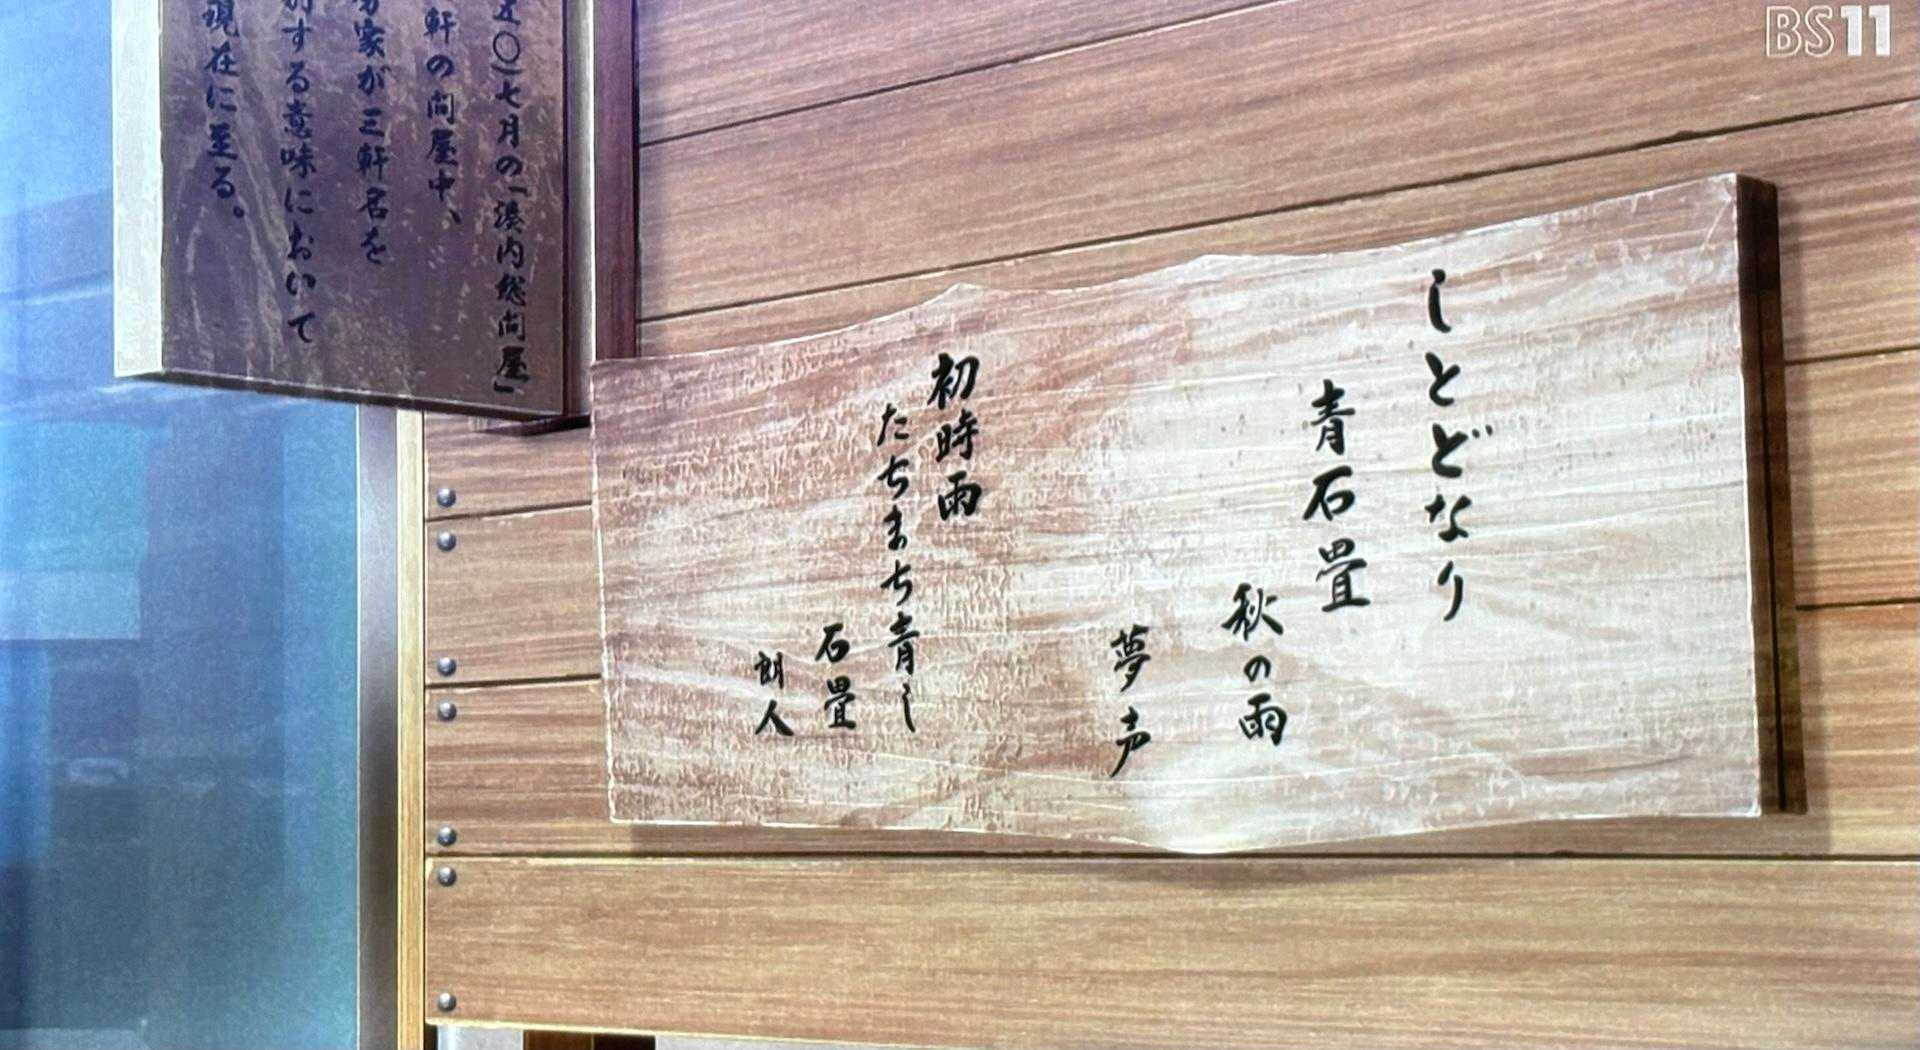 BS11
しとどなり
青石畳
秋の雨
夢声
初時雨
たちまち青し
石畳
朗人
五〇)七月の「湊内総問屋」
軒の問屋中、
家が三軒名を
する意味において
現在に至る。